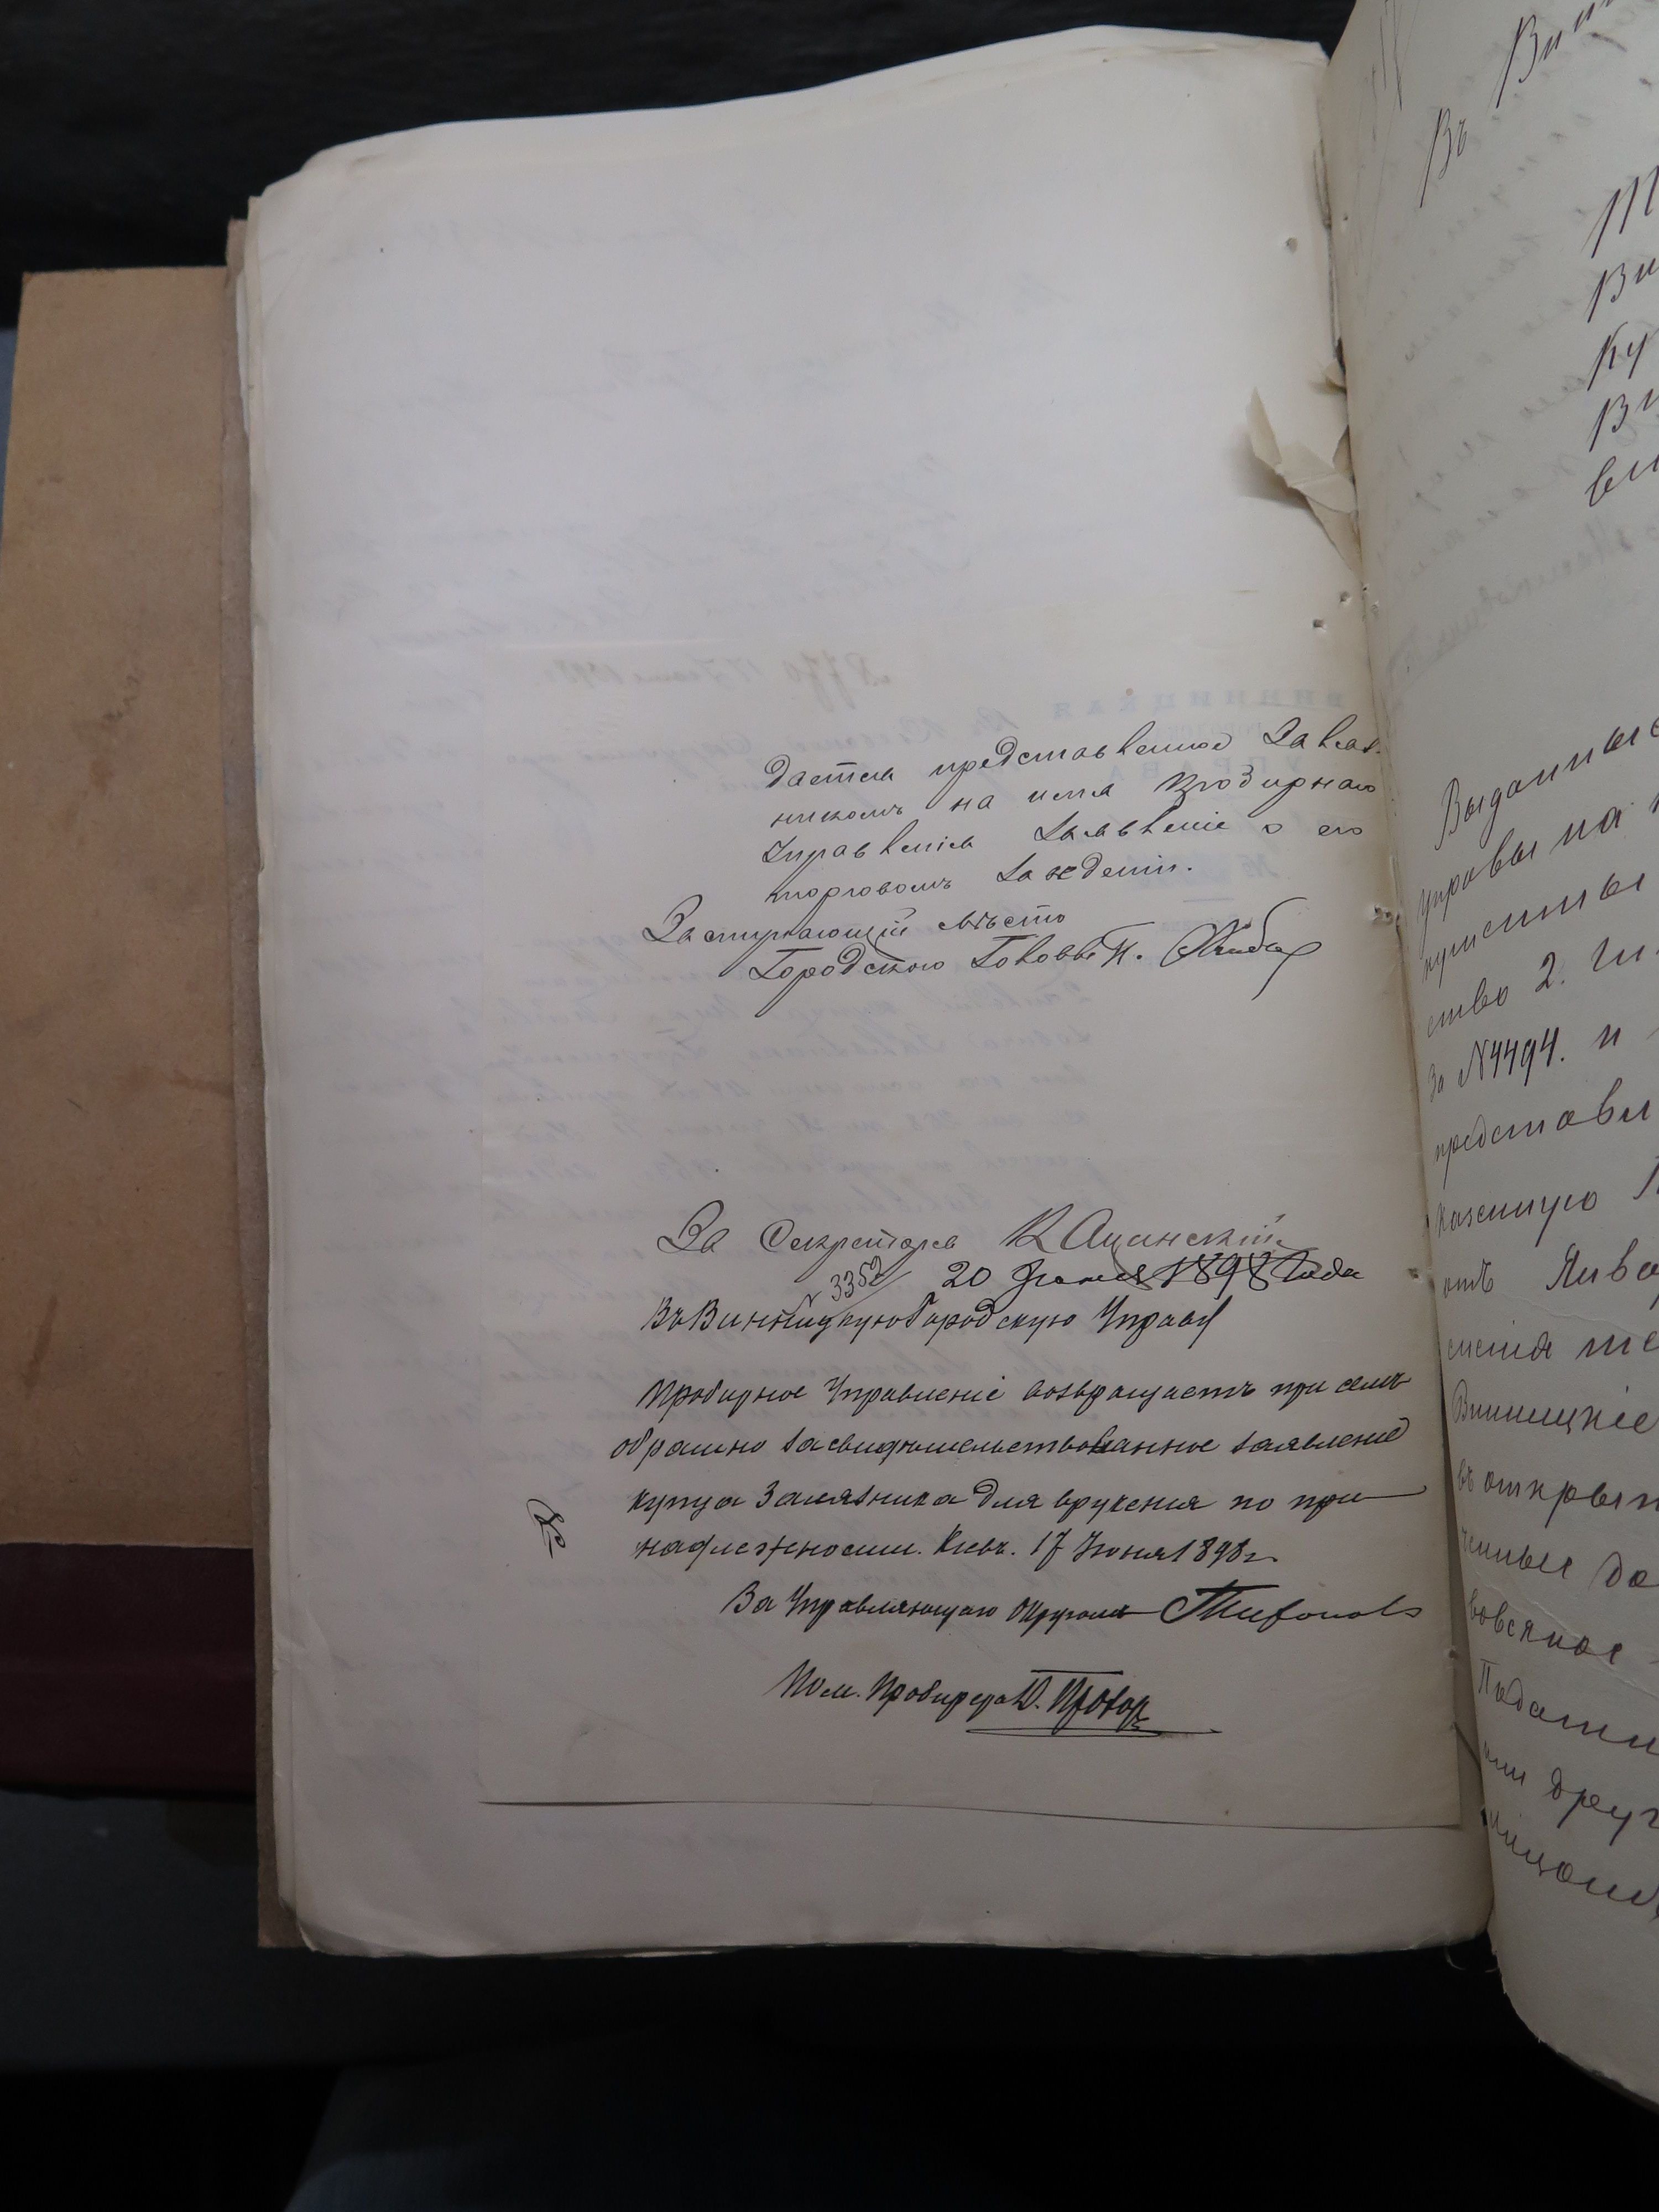 дается представленное Заляз-
никомъ на имя Пробирнаго
Управленія Заявленіе о его
торговомъ Заведеніи.
Заступающій мѣсто
Городского Головы П.
За Секретаря К Ацинскій
№ 3352 20 Іюня 1898 Года
Въ Винницкую Городскую Управу
Пробирное Управленіе возвращаетъ при семъ
обратно засвидѣтельствованное заявленіе
купца Залязника для врученія по при-
надлежности. Кіевъ. 17 Іюня 1898 г.
За Управляющаго Округомъ
Пом. Пробирера
Въ
Выданные
управы на
купеческіе
ство 2. ги
За №4494. и
представл
казенную
отъ Янва
Винницкіе
въ открыт
Подати
или друг